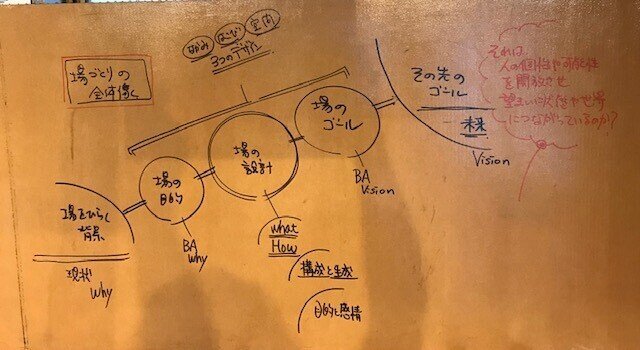 場づくりの
全体像
なかみ はこび 空間
3つのデザイン
場をひらく
背景
現状
Why
場の
目的
BA
Why
場の
設計
What
How
構成と生成
目的と感情
場の
ゴール
BA
Vision
その先の
ゴール
未来
Vision
それは
人の個性や可能性
を開放させ
望ましい状態や世界
につながっているのか?